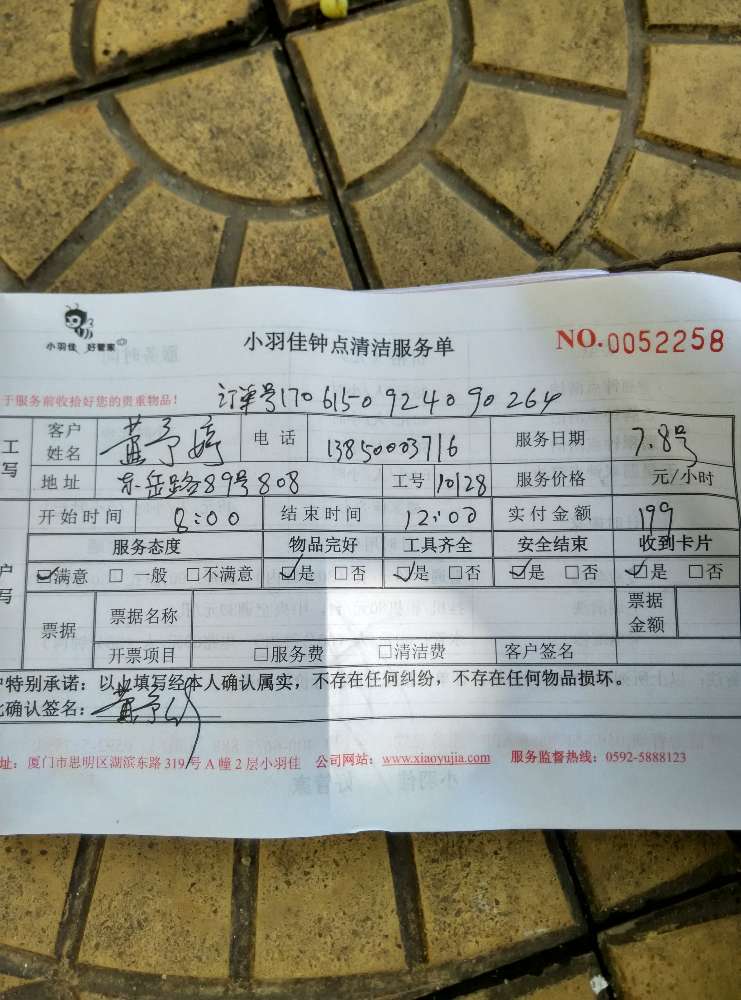 小羽佳 好管家
小羽佳钟点清洁服务单
NO.0052258
于服务前收拾好您的贵重物品!
订单号170615092409 0264
工 写
客户姓名 黄予婷 电话 13850003716 服务日期 7.8号
地址 东岳路89号808 工号 10128 服务价格 元/小时
开始时间 8:00 结束时间 12:00 实付金额 199
户 写
服务态度 物品完好 工具齐全 安全结束 收到卡片
☑满意 □一般 □不满意 ☑是 □否 ☑是 □否 ☑是 □否 ☑是 □否
票据 票据名称 票据金额
开票项目 □服务费 □清洁费 客户签名
户特别承诺:以上填写经本人确认属实,不存在任何纠纷,不存在任何物品损坏。
此确认签名:黄予婷
址:厦门市思明区湖滨东路319号A幢2层小羽佳 公司网站:www.xiaoyujia.com 服务监督热线:0592-5888123